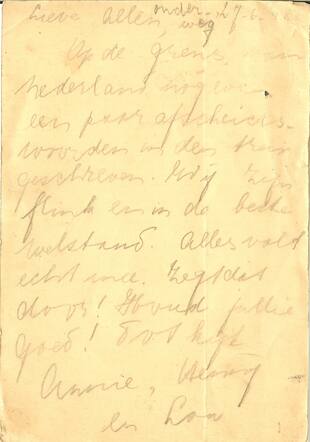 Lieve Allen, onder-
weg
Op de grens van
Nederland nog even
een paar afscheids-
woorden in den trein
geschreven. Wij zijn
flink en in de beste
welstand. Alles valt
echt mee. Zegt dat
door! Houd jullie
goed! Tot kijk
Annie, Henny
en Loa